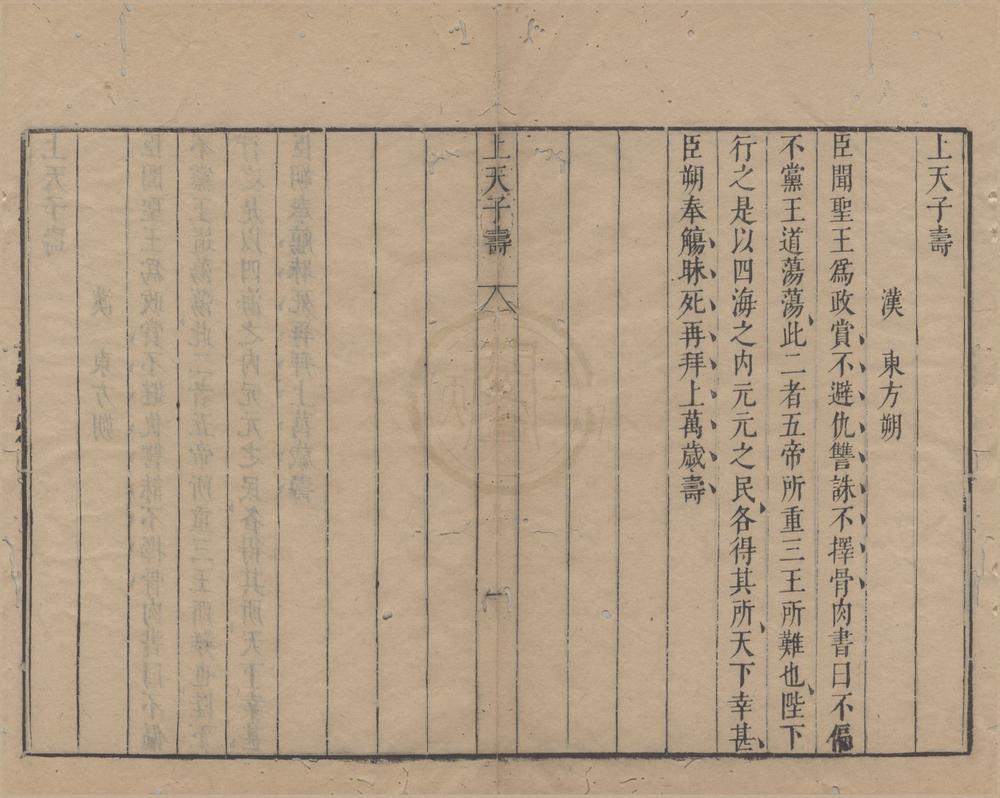 上天子壽
漢 東方朔
臣聞聖王爲政賞不避仇讐誅不擇骨肉書曰不偏
不黨王道蕩蕩此二者五帝所重三王所難也陛下
行之是以四海之内元元之民各得其所天下幸甚
臣朔奉觴昧死再拜上萬歲壽
上天子壽
一